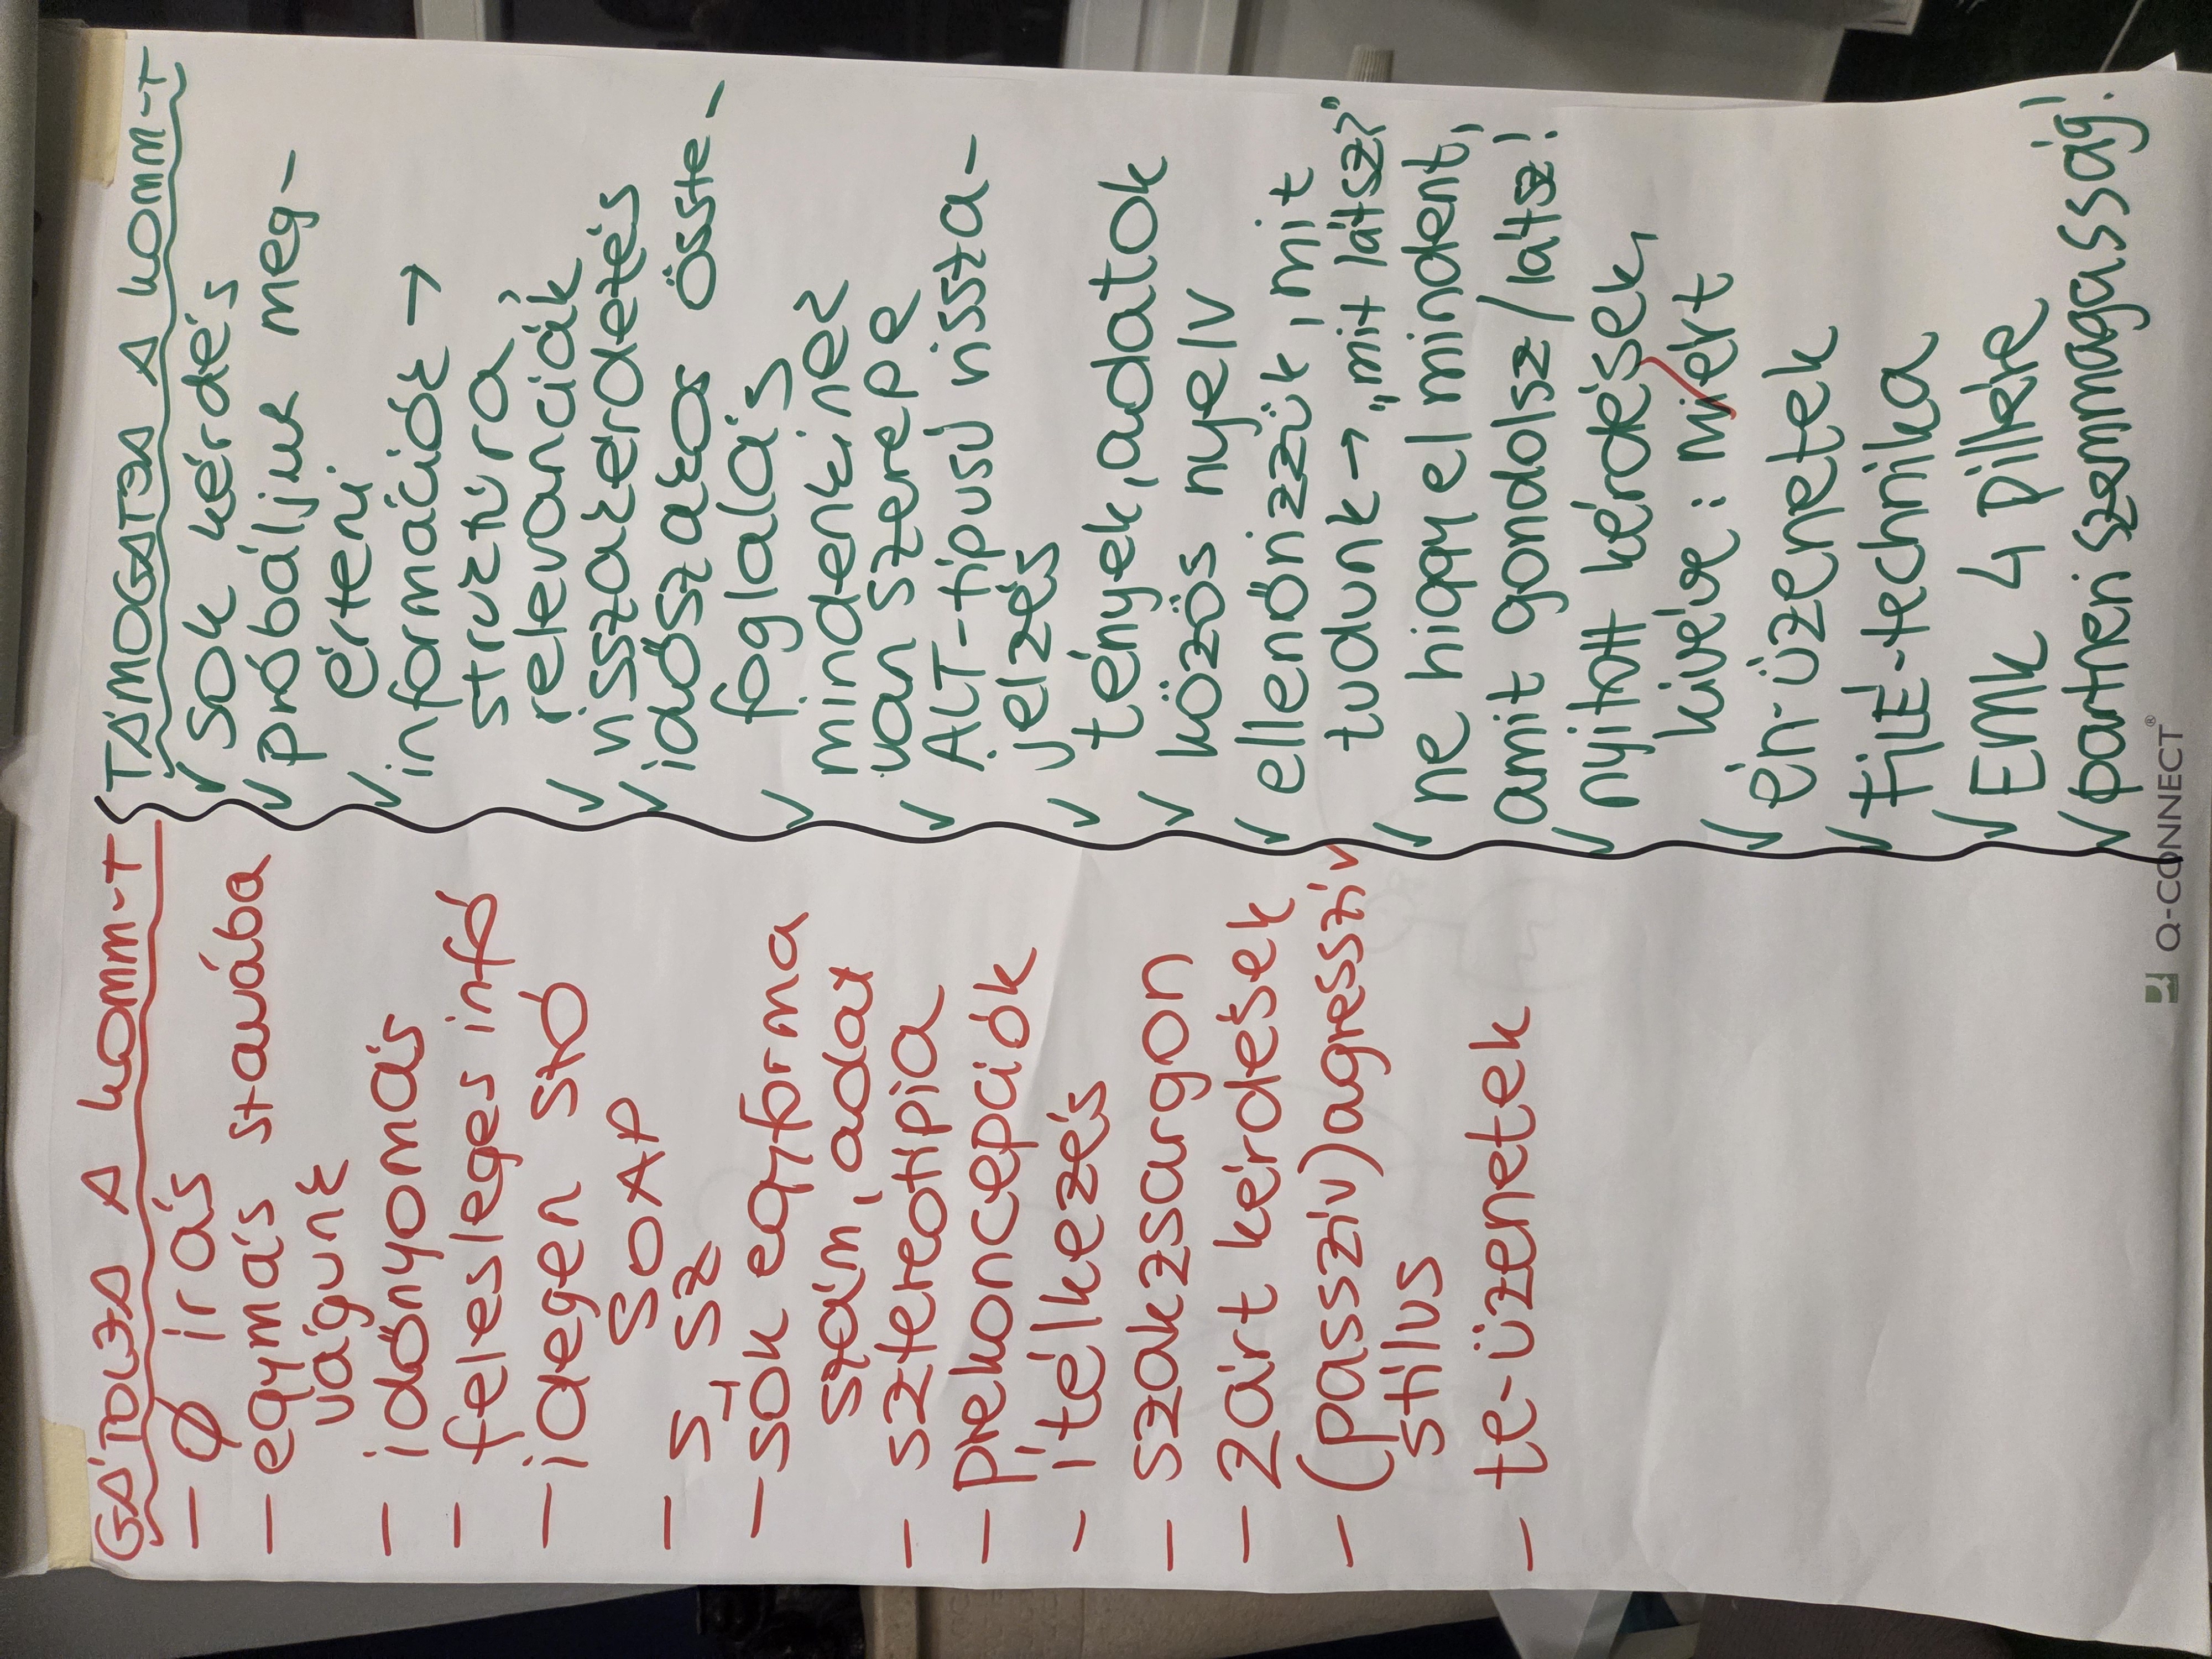 GÁTOLJA A KOMM-T
- Ø írás
- egymás szavába
vágunk
- időnyomás
- felesleges infó
- idegen szó
SOAP
- S SZ
- sok egyforma
szám, adat
- sztereotípia
- prekoncepciók
- ítélkezés
- szakzsargon
- zárt kérdések
- (passzív) agresszív
stílus
- te-üzenetek
TÁMOGATJA A KOMM-T
✓ sok kérdés
✓ próbáljuk meg-
érteni
✓ információk →
struktúra,
relevanciák
✓ visszakérdezés
✓ időszakos össze-
foglalás
✓ mindenkinek
van szerepe
✓ ALT-típusú vissza-
jelzés
✓ tények, adatok
✓ közös nyelv
✓ ellenőrizzük, mit
tudunk → „mit látsz?"
✓ ne higgy el mindent,
amit gondolsz/látsz!
✓ nyitott kérdések,
kivéve: miért
✓ én-üzenetek
✓ FILE-technika
✓ EMK 4 pillére
✓ partneri szemmagasság!
Q-CONNECT®